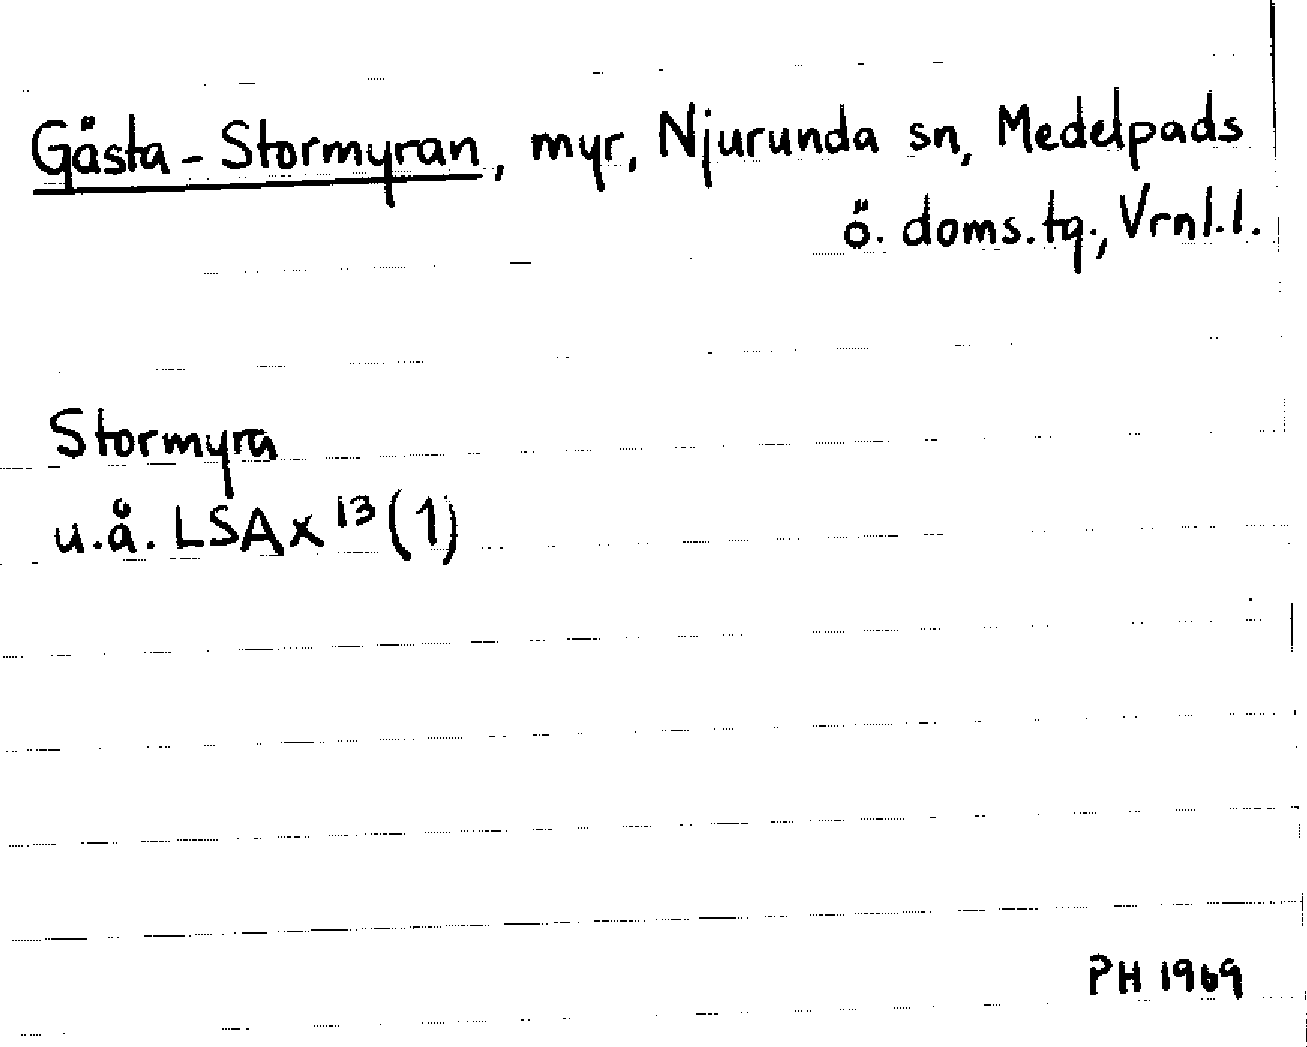 Gästa-Stormyran, myr, Njurunda sn, Medelpads
ö. doms.tg., Vrnl.l.
Stormyra
u.å. LSA x 13 (1)
PH 1969